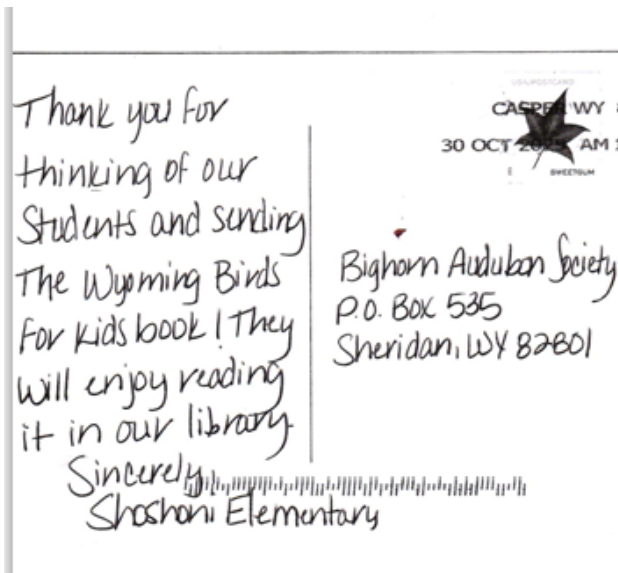 Thank you for
thinking of our
Students and sending
The Wyoming Birds
For kids book! They
will enjoy reading
it in our library.
Sincerely,
Shoshoni Elementary
USA/POSTCARD
CASPER WY
30 OCT 2025 AM
SWEETGUM
Bighorn Audubon Society
P.O. Box 535
Sheridan, WY 82801